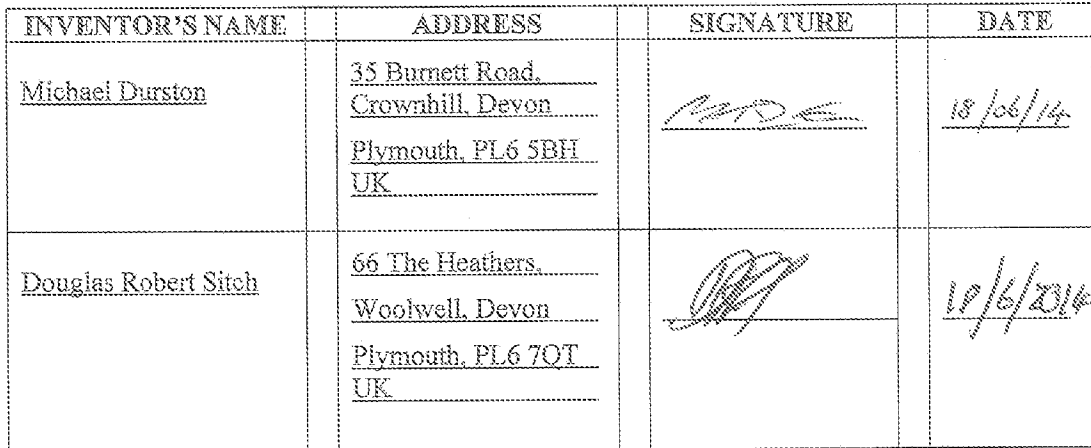 INVENTOR'S NAME ADDRESS SIGNATURE DATE
Michael Durston
35 Burnett Road,
Crownhill, Devon
Plymouth, PL6 5BH
UK
18/06/14
Douglas Robert Sitch
66 The Heathers,
Woolwell, Devon
Plymouth, PL6 7QT
UK